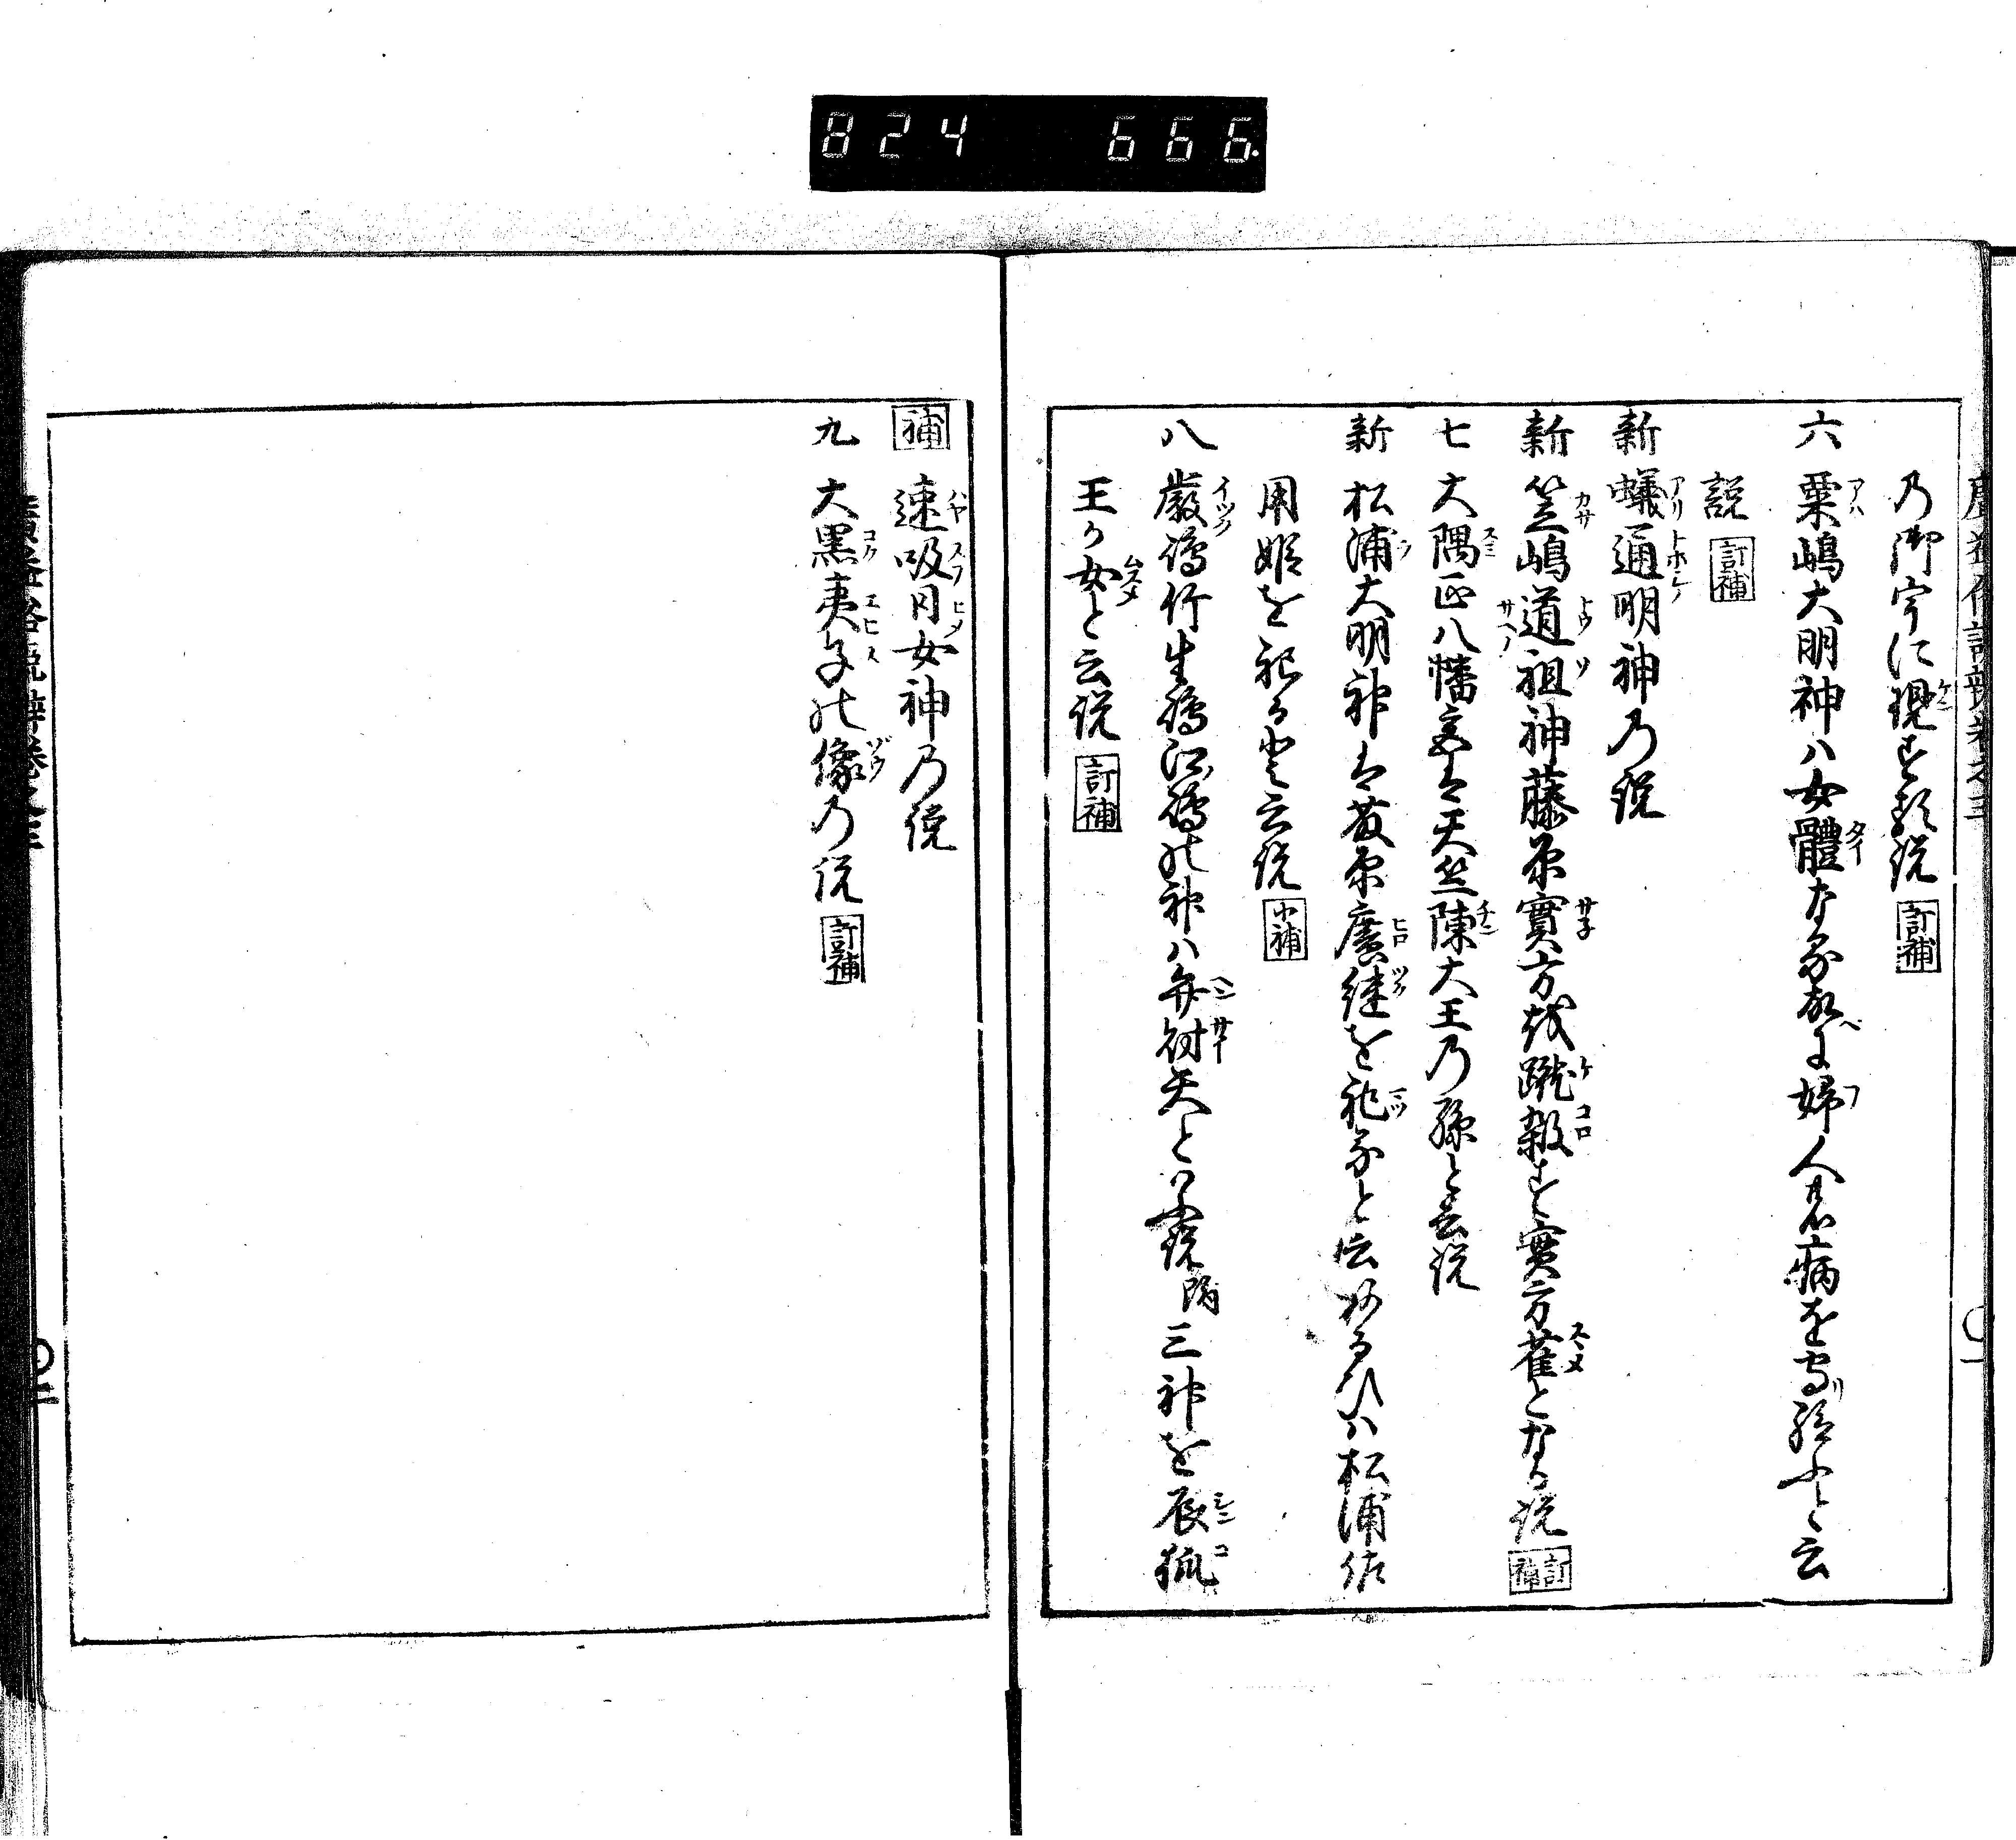 824 666.
乃御宇に現ずる説 訂補
六 粟嶋大明神ハ女體なる故に婦人の病を守り給ふと云
説 訂補
新 蟻通明神乃説
新 笠嶋道祖神藤原實方を蹴殺す實方雀となる説 訂補
七 大隅正八幡宮は天竺陳大王乃孫と云説
新 松浦大明神は藤原廣継を祀ると云あるひハ松浦佐
用姫を祀ると云説 小補
八 嚴嶋竹生嶋江嶋の神ハ弁財天といふ説 附 三神を辰狐
王の女と云説 訂補
補 速吸日女神乃説
九 大黒夷子の像乃説 訂補
廣益俗説辨巻之三